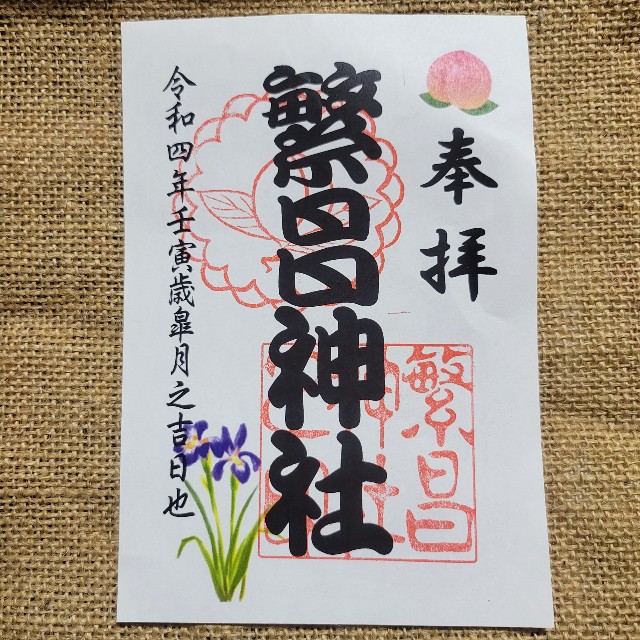 奉拝
繁昌神社
繁昌
神社
令和四年壬寅歳皐月之吉日也